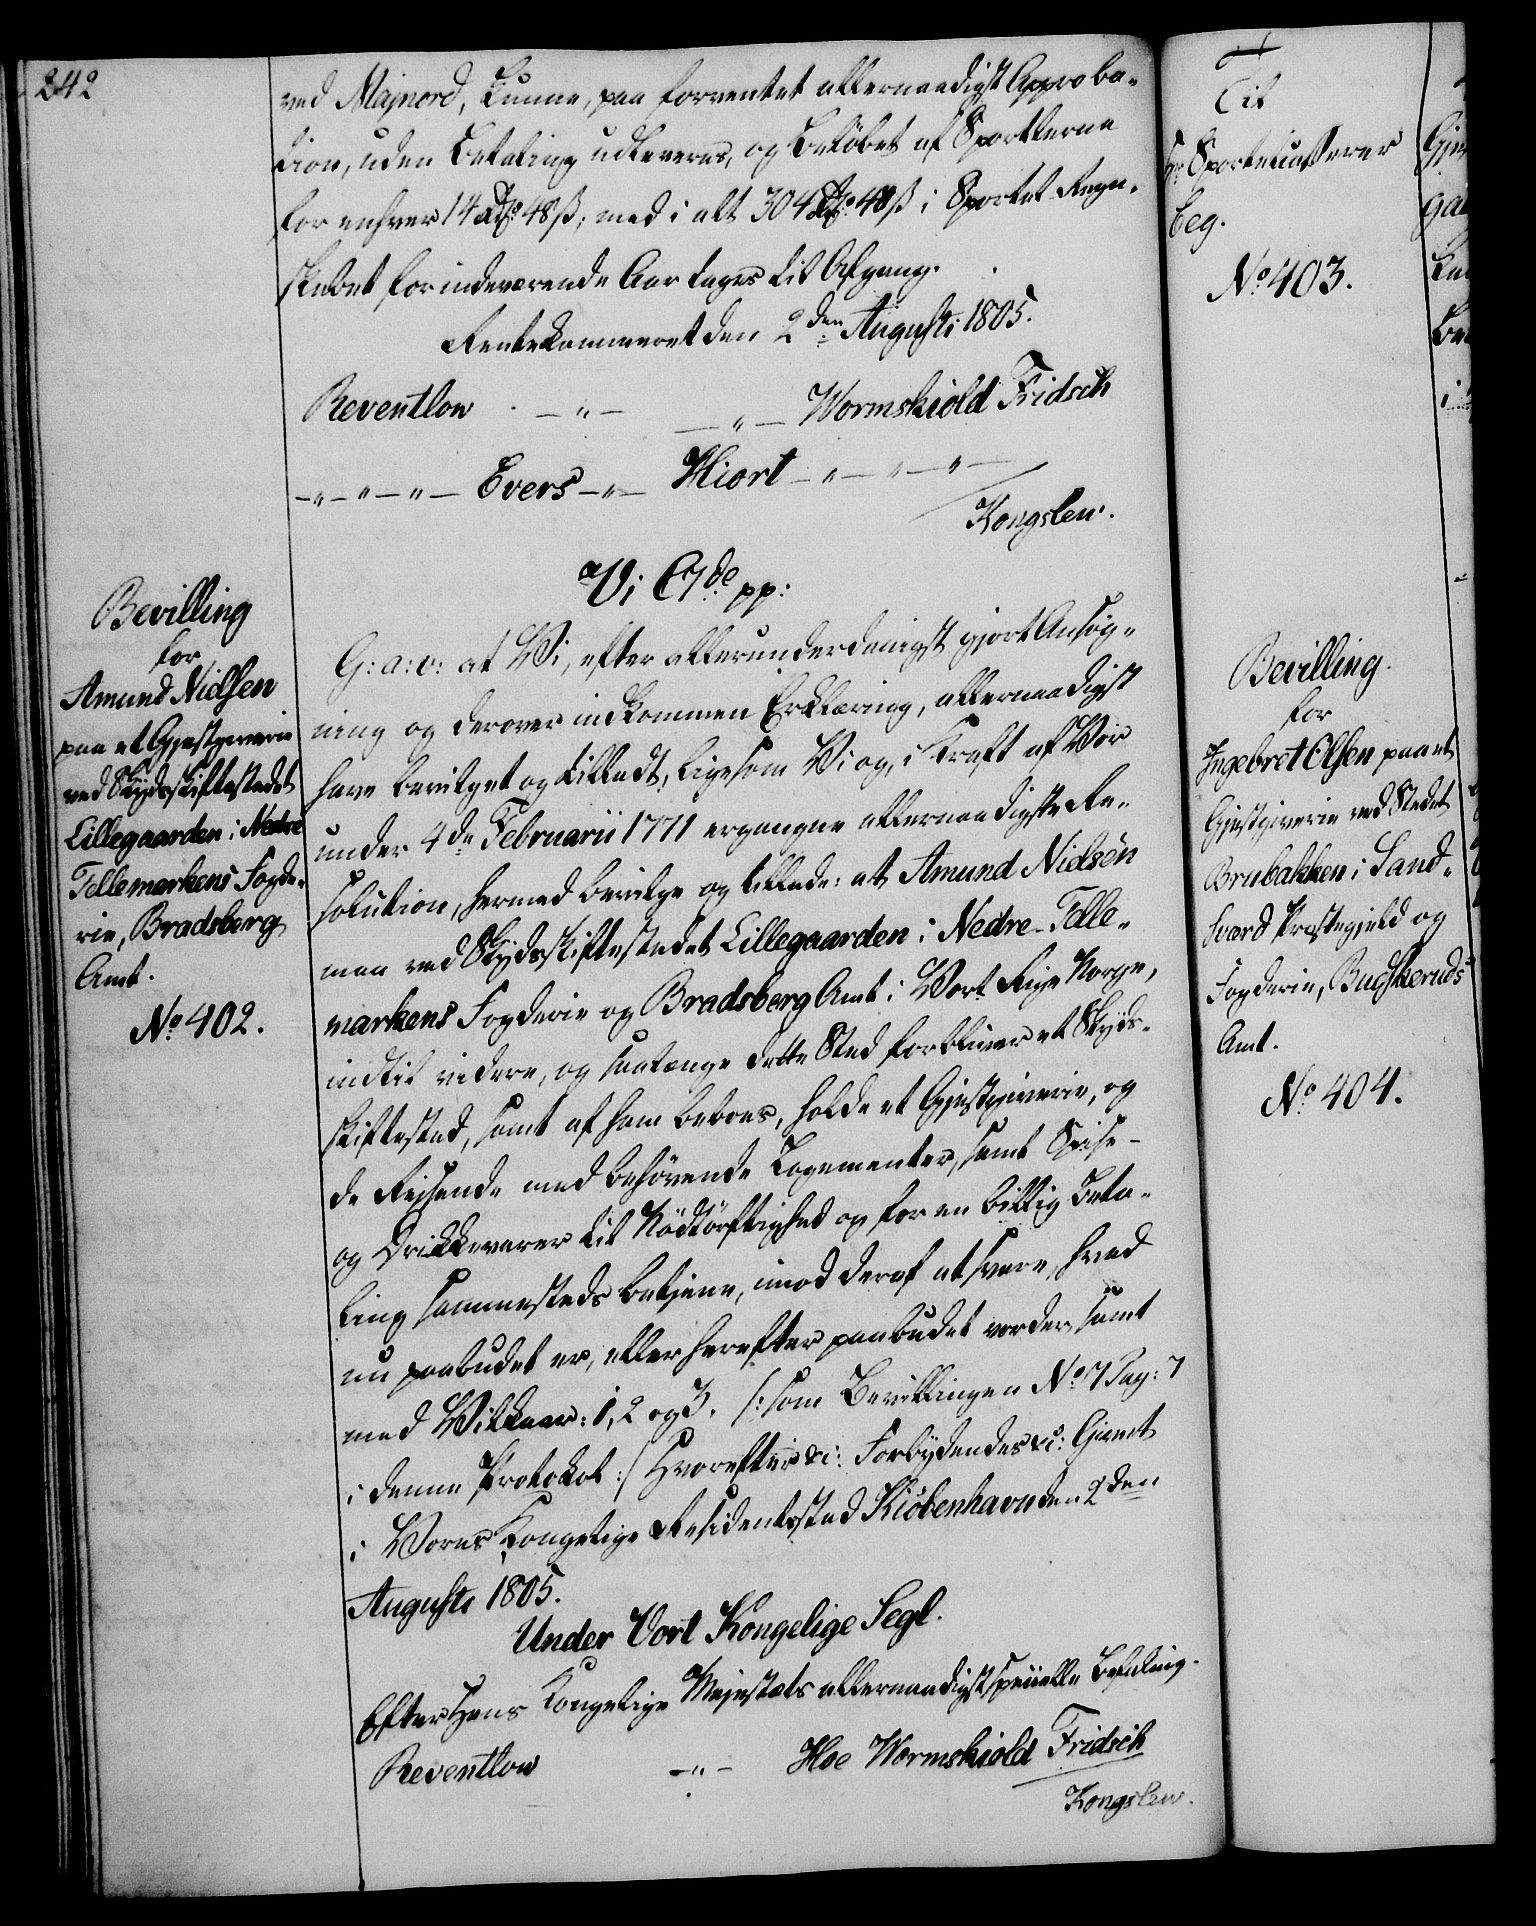 242
ved Majnord, kunne, paa forventet allernaadigst Approba-
tion, uden Betaling udleveres, og Beløbet af Sportlerne
for enhver 14 Rdr. 48 ß, med i alt 304 Rdr. 48 ß i Sportel-Regn-
skabet for indeværende Aar tages til Afgang.
Rentekammeret den 2den Augusti 1805.
Reventlow - " - - " - Wormskiold Fridsch
- " - " - " - Evers - " - Hiort - " - " - " -
Kongslew.
Bevilling
for
Amund Nielsen
paa et Gjestgiverie
ved Skydsskiftestedet
Lillegaarden i Nedre
Tellemarkens Fogde-
rie, Bradsberg
Amt.
No. 402.
Vi C 7de pp:
G: a: v: at Vi, efter allerunderdanigst gjort Ansøg-
ning og derover indkommen Erklæring, allernaadigst
have bevilget og tilladt, ligesom Vi og, i Kraft af Vor
under 4de Februarii 1771 ergangne allernaadigste Re-
solution, hermed bevilge og tillade: at Amund Nielsen
maa ved Skydsskiftestedet Lillegaarden i Nedre-Telle-
markens Fogderie og Bradsberg Amt i Vort Rige Norge,
indtil videre, og saalænge dette Sted forbliver et Skyds-
skiftested, samt af ham beboes, holde et Gjestgiverie, og
de Rejsende med behøvende Logementer, samt Spise-
og Drikkevarer til Nødtørftighed og for en billig Beta-
ling sammesteds betjene, imod deraf at svare, hvad
nu paabudet er, eller herefter paabudet vorder, samt
med Vilkaar: 1, 2 og 3. /: som Bevillingen No. 7 Pag: 7
i denne Protokol :/ Hvorefter &c: Forbydendes &c: Givet
i Vores Kongelige Residentsstad Kiøbenhavn den 2den
Augusti 1805.
Under Vort Kongelige Segl.
Efter Hans Kongelige Majestæts allernaadigst specielle Befaling.
Reventlow - " - Hoe Wormskiold Fridsch
Kongslew.
Til
Hr. Sportelcasserer
Beg.
No. 403.
Bevilling
for
Ingebret Olsen paa et
Gjestgiverie ved Stedet
Brubakken i Sand-
sværd Præstegield og
Fogderie, Buskeruds
Amt.
No. 404.